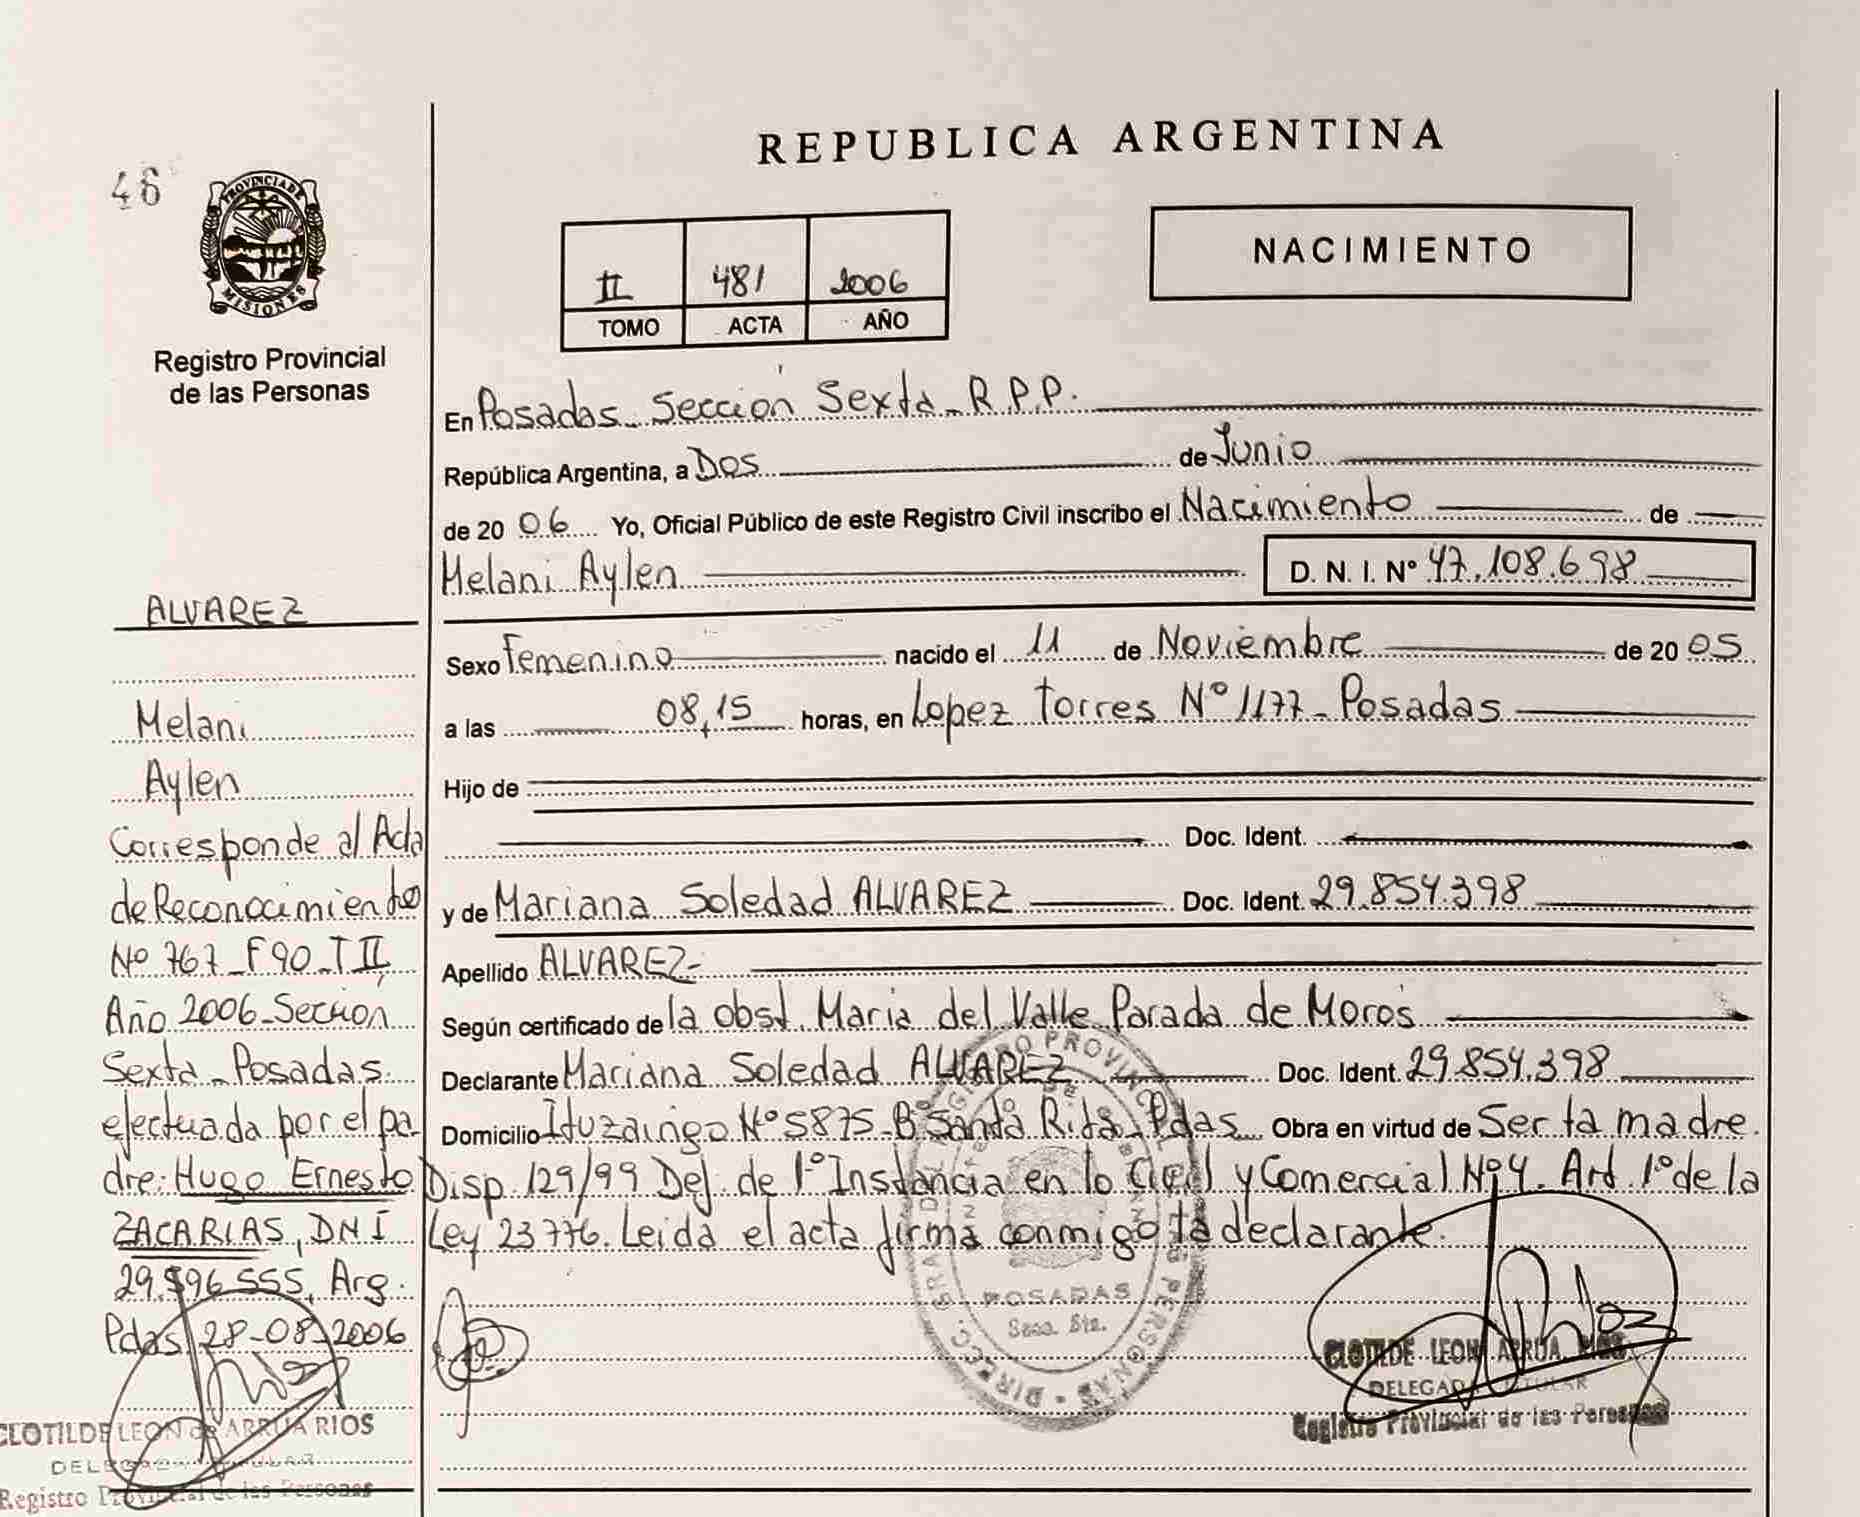 REPUBLICA ARGENTINA
46
PROVINCIA DE
MISIONES
Registro Provincial
de las Personas
II 481 2006
TOMO ACTA AÑO
NACIMIENTO
En Posadas Sección Sexta R.P.P.
República Argentina, a Dos de Junio
de 20 06 Yo, Oficial Público de este Registro Civil inscribo el Nacimiento de
Melani Aylen D. N. I. Nº 47.108.698
Sexo Femenino nacido el 11 de Noviembre de 20 05
a las 08,15 horas, en Lopez Torres Nº 1177 - Posadas
Hijo de
Doc. Ident.
y de Mariana Soledad ALVAREZ Doc. Ident. 29.854.398
Apellido ALVAREZ-
Según certificado de la obst. Maria del Valle Parada de Moros
Declarante Mariana Soledad ALVAREZ Doc. Ident. 29.854.398
Domicilio Ituzaingo Nº 5875 - Bº Santa Rita - Pdas Obra en virtud de Ser la madre.
Disp. 129/99 Def. de 1º Instancia en lo Civil y Comercial Nº 4. Art. 1º de la
Ley 23776. Leida el acta firma conmigo la declarante.
ALVAREZ
Melani
Aylen
Corresponde al Acta
de Reconocimiento
Nº 767 - F 90 - T II,
Año 2006 - Sección
Sexta - Posadas
efectuada por el pa-
dre: Hugo Ernesto
ZACARIAS, DNI
29.596.555, Arg.
Pdas 28-08-2006
CLOTILDE LEON de ARRUA RIOS
DELEGADA TITULAR
Registro Provincial de las Personas
POSADAS
Secc. 6ta.
CLOTILDE LEON ARRUA RIOS
DELEGADA TITULAR
Registro Provincial de las Personas